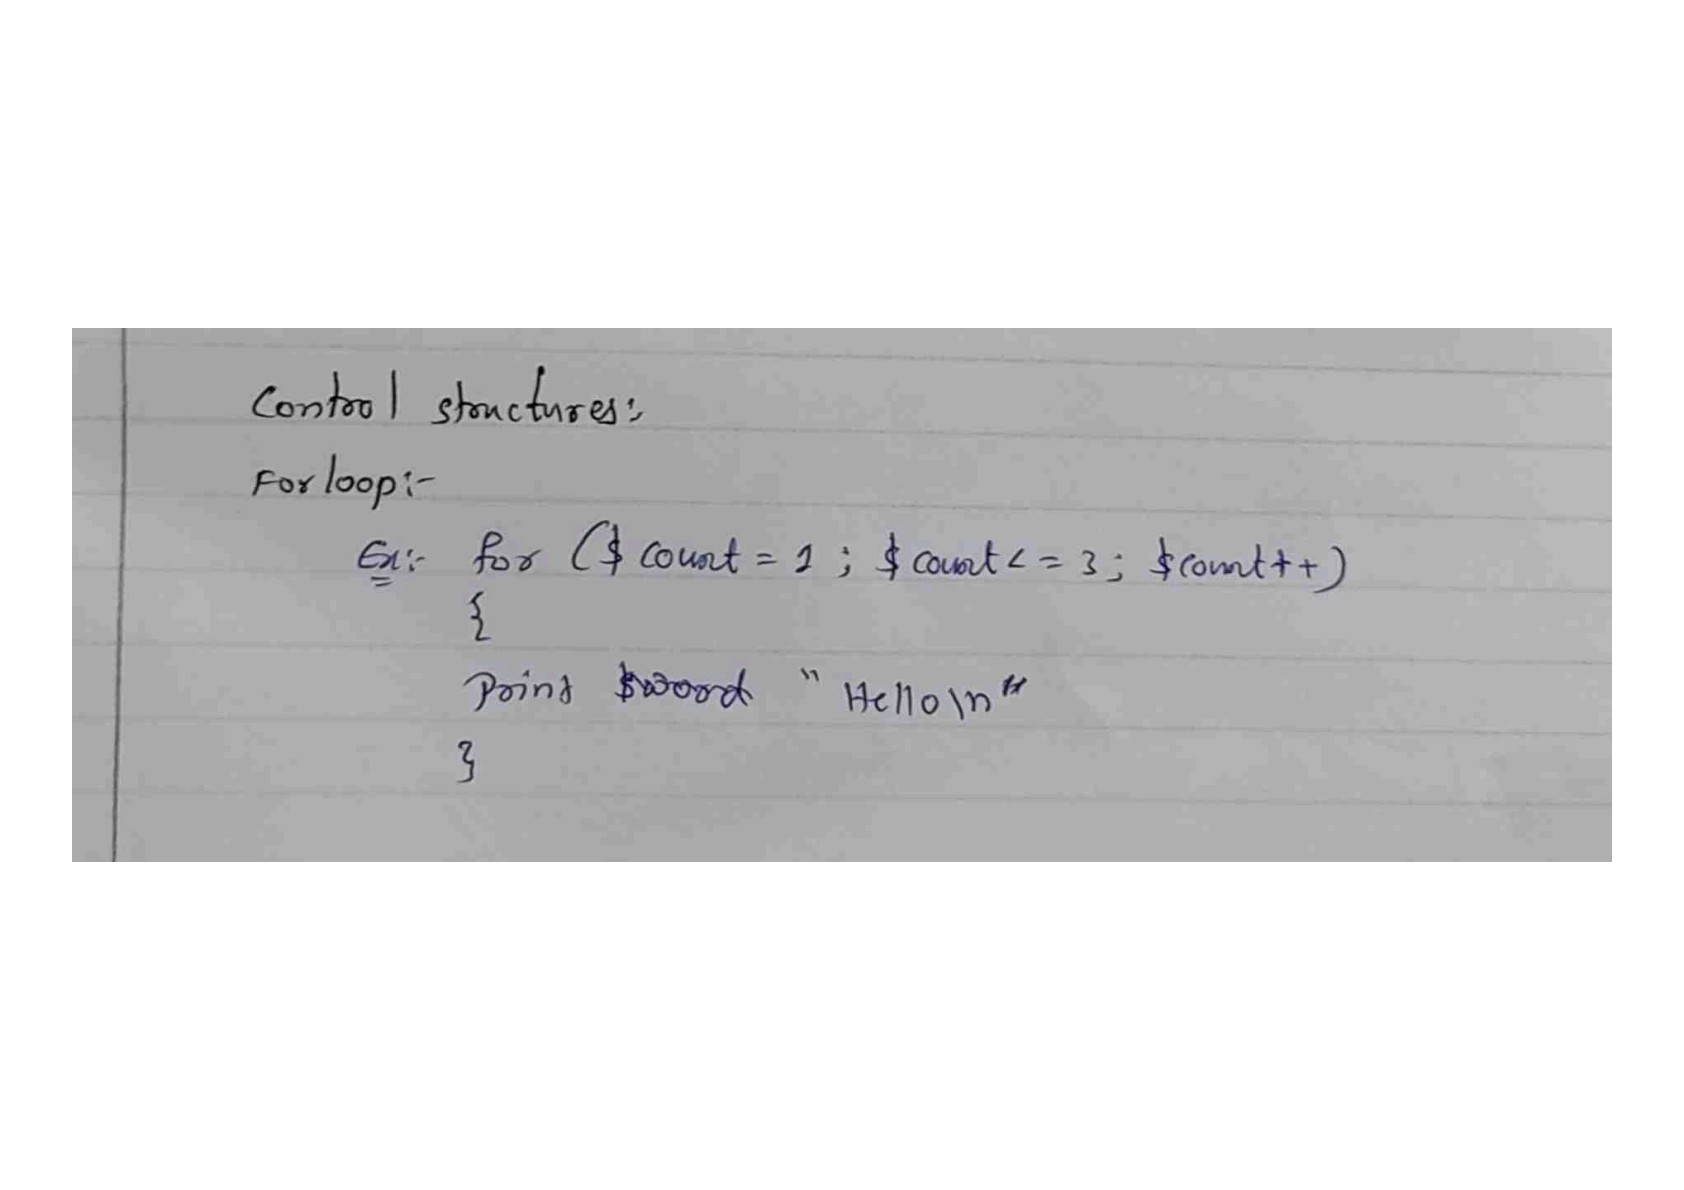 Control structures:
For loop:-
Ex:- for ($ count = 1 ; $ count < = 3 ; $count++)
{
Print $word " Hello\n"
}